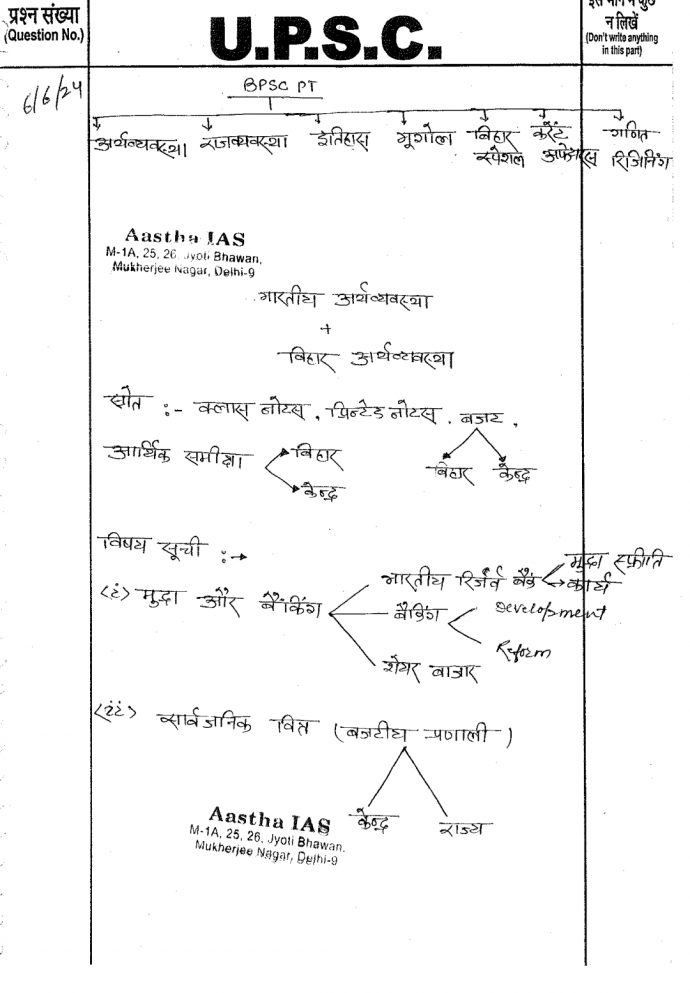 प्रश्न संख्या
(Question No.)
U.P.S.C.
न लिखें
(Don't write anything
in this part)
6/6/24
BPSC PT
अर्थव्यवस्था राजव्यवस्था इतिहास भूगोल बिहार स्पेशल करेंट अफेयर्स गणित रिजिनिंग
Aastha IAS
M-1A, 25, 26, Jyoti Bhawan,
Mukherjee Nagar, Delhi-9
भारतीय अर्थव्यवस्था
+
बिहार अर्थव्यवस्था
स्रोत :- क्लास नोटस, प्रिन्टेड नोटस, बजट,
बिहार केन्द्र
आर्थिक समीक्षा बिहार
केन्द्र
विषय सूची :→
(i) मुद्रा और बैंकिंग
भारतीय रिर्जव बैंक मुद्रा स्फीति
कार्य
बैंकिंग Development
Reform
शेयर बाजार
(ii) सार्वजनिक वित्त (बजटीय प्रणाली)
केन्द्र राज्य
Aastha IAS
M-1A, 25, 26, Jyoti Bhawan,
Mukherjee Nagar, Delhi-9